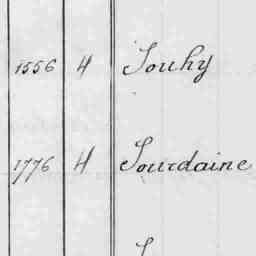 1556 4 Jouhy
1776 4 Jourdaine
J